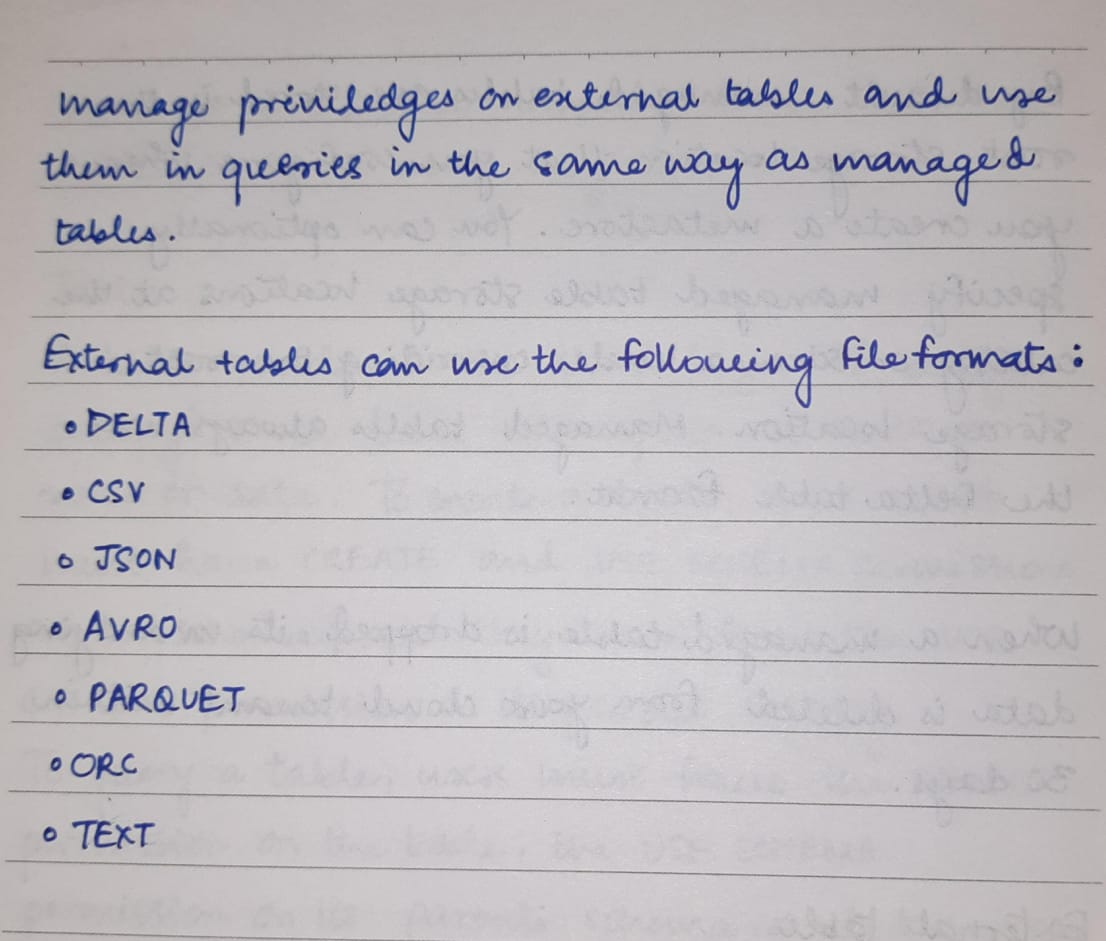 manage priviledges on external tables and use
them in queries in the same way as managed
tables.
External tables can use the following file formats:
• DELTA
• CSV
• JSON
• AVRO
• PARQUET
• ORC
• TEXT